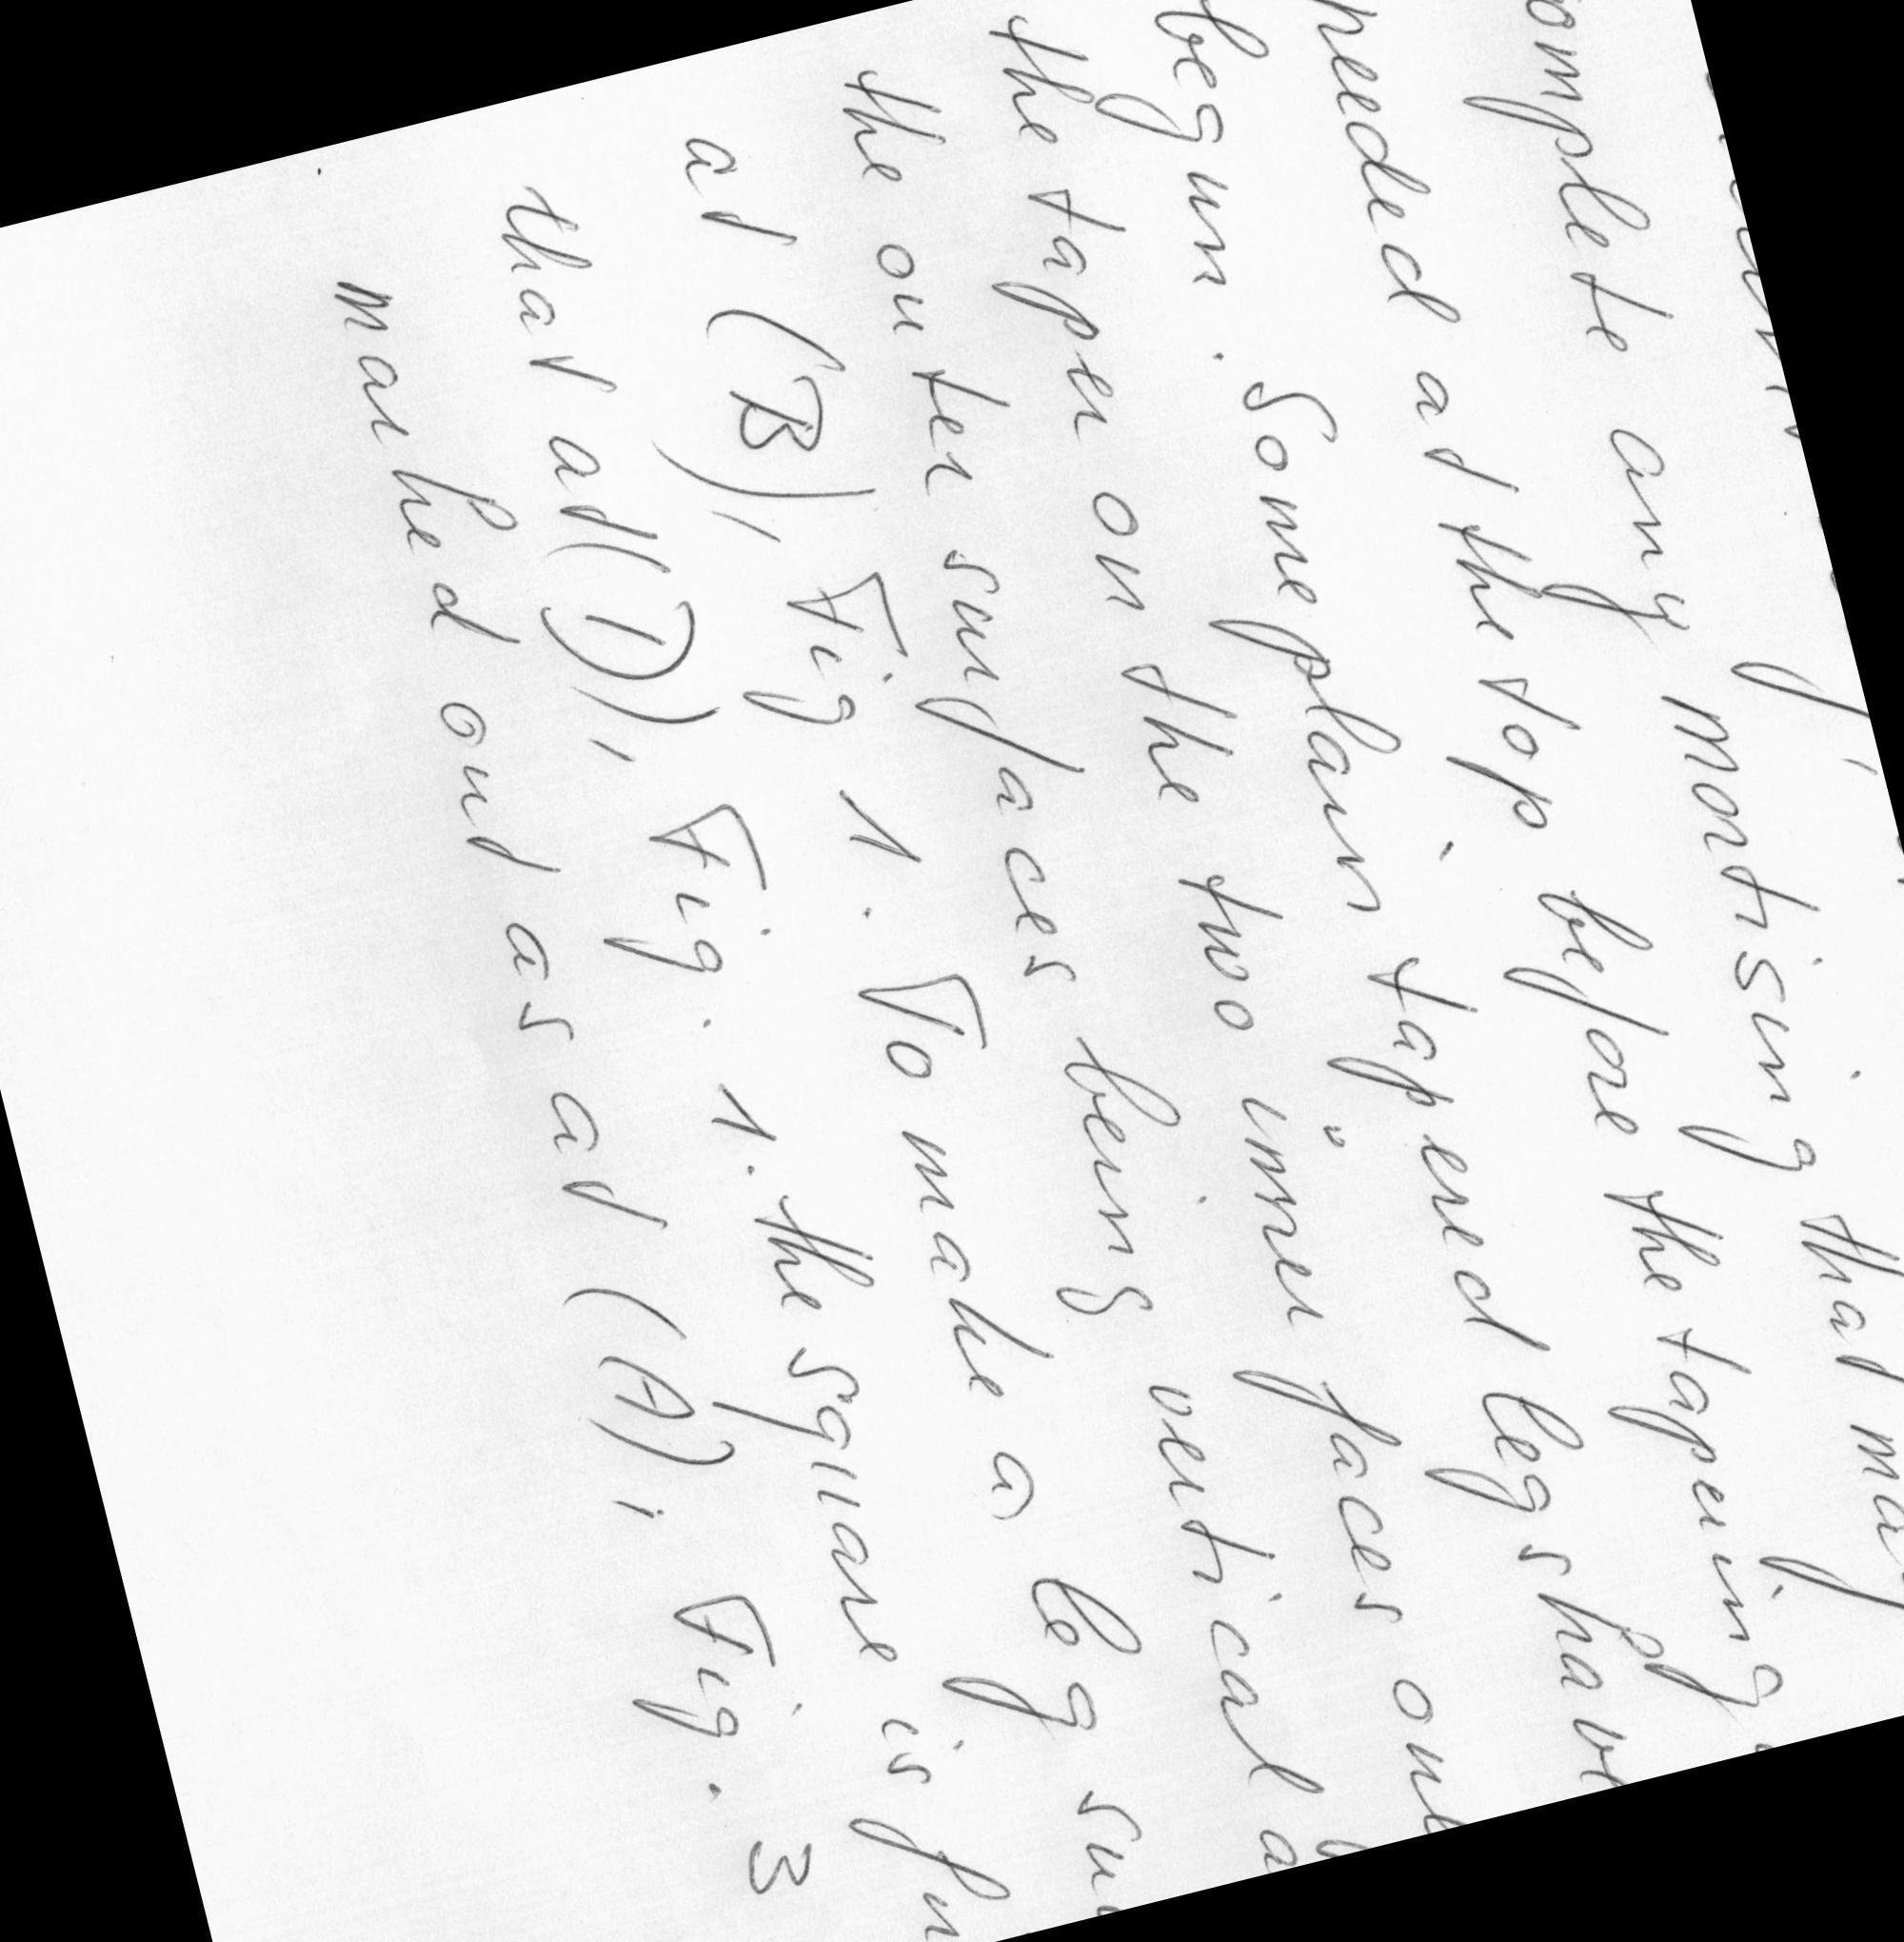 complete any mortising that may
needed at the top before the tapering
begun. Some plain tapered legs have
the taper on the two inner faces only
the outer surfaces being vertical a
at (B), Fig 1. To make a leg su
that at (D), Fig. 1. the square is fir
marked out as at (A), Fig. 3